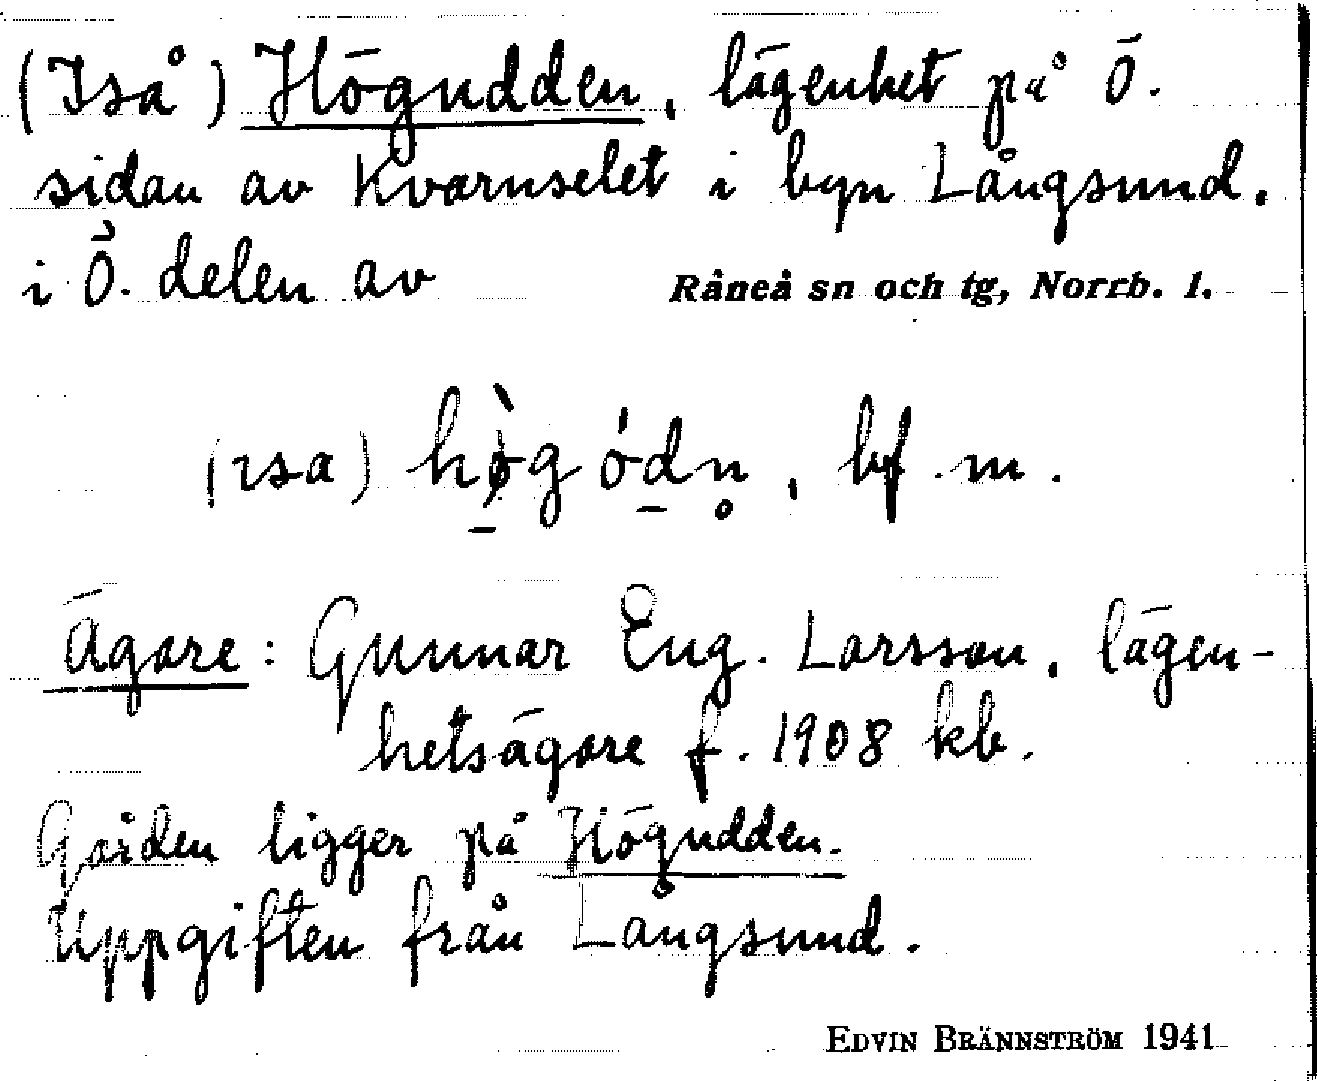 (Iså) Högudden, lägenhet på Ö.
sidan av Kvarnselet i byn Långsund,
i Ö. delen av Råneå sn och tg, Norrb. l.
(ɪsa) hò̱góḏn̥, bf. m.
Ägare: Gunnar Eug. Larsson, lägen-
hetsägare f. 1908 kb.
Gården ligger på Högudden.
Uppgiften från Långsund.
EDVIN BRÄNNSTRÖM 1941